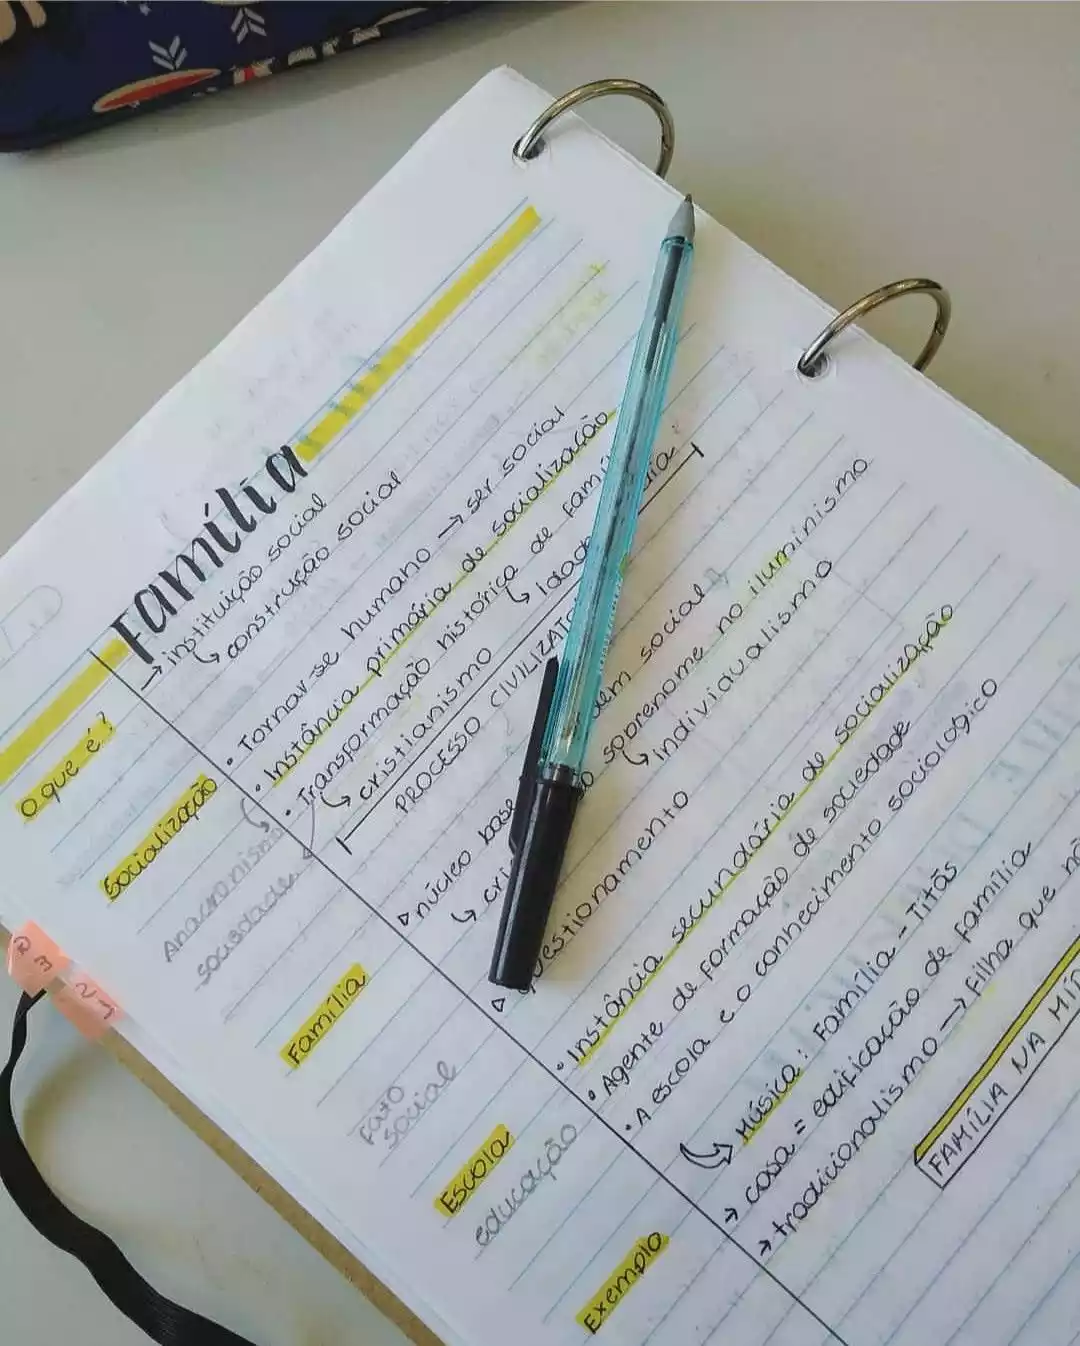 Família
O que é?
→ instituição social
↳ construção social
Socialização
• Tornar-se humano → ser social
• Instância primária de socialização
• Transformação histórica de
↳ cristianismo ↳
PROCESSO
Anacronismo
sociedade
Família
▷ núcleo base social
sobrenome no iluminismo
↳ individualismo
▷ questionamento
Fato
social
Escola
educação
• Instância secundária de socialização
• Agente de formação de sociedade
• A escola e o conhecimento sociológico
Exemplo
↳ Música: Família - Titãs
→ casa = edificação de família
→ tradicionalismo → filha que
FAMÍLIA NA
R
3